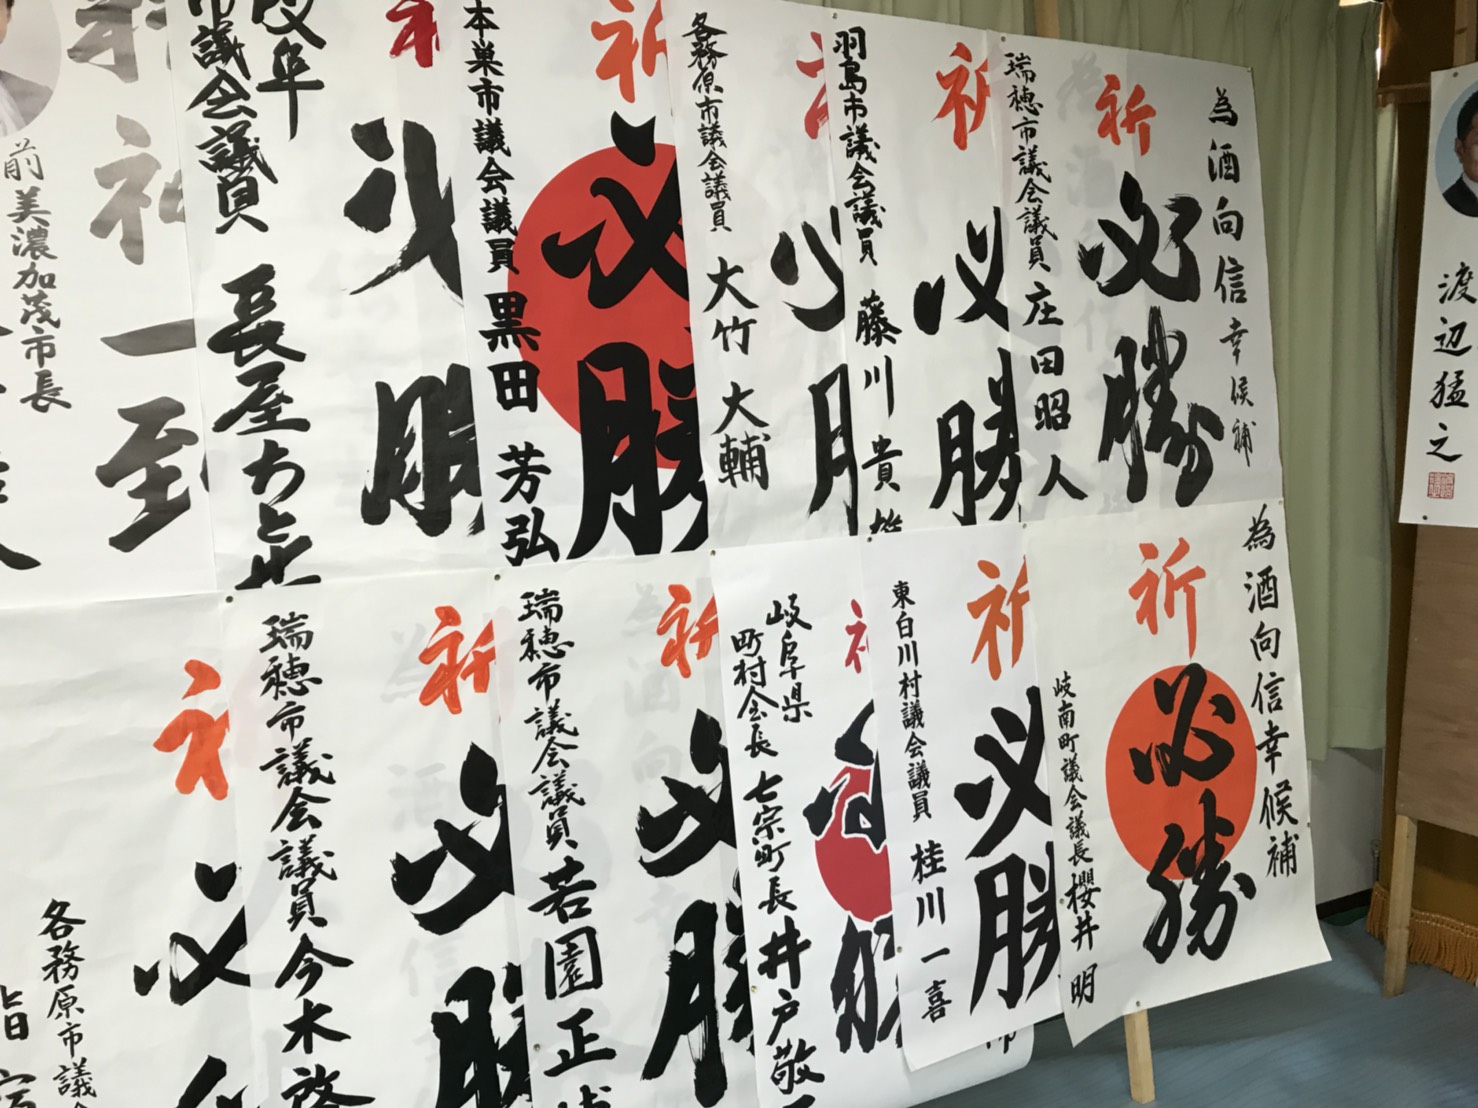 為酒向信幸候補
祈
必勝
瑞穂市議会議員
庄田昭人
祈
必勝
羽島市議会議員
藤川貴
必
各務原市議会議員
大竹大輔
祈
必勝
本巣市議会議員
黒田芳弘
市議会議員
長屋
前美濃加茂市長
一
渡辺猛之
為酒向信幸候補
祈
必勝
岐南町議会議長
櫻井明
祈
必勝
東白川村議会議員
桂川一喜
岐阜県
町村会長
七宗町長
井戸敬
祈
必勝
瑞穂市議会議員
若園正
祈
必
瑞穂市議会議員
今木啓
必
各務原市議会